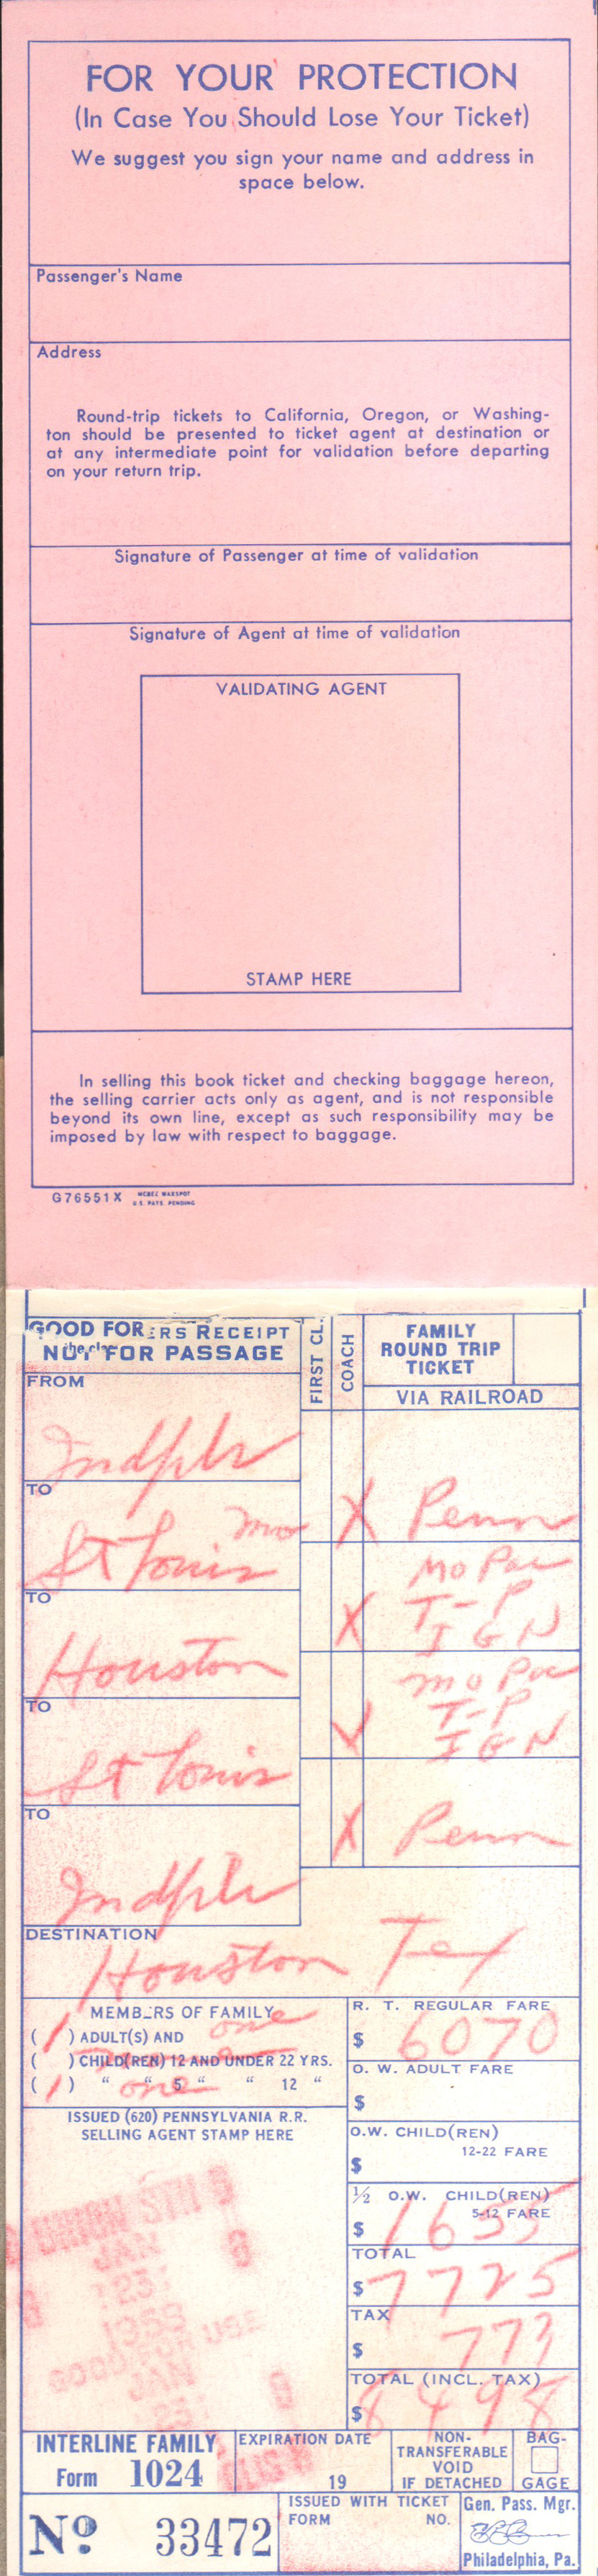 FOR YOUR PROTECTION
(In Case You Should Lose Your Ticket)
We suggest you sign your name and address in
space below.
Passenger's Name
Address
Round-trip tickets to California, Oregon, or Washing-
ton should be presented to ticket agent at destination or
at any intermediate point for validation before departing
on your return trip.
Signature of Passenger at time of validation
Signature of Agent at time of validation
VALIDATING AGENT
STAMP HERE
In selling this book ticket and checking baggage hereon,
the selling carrier acts only as agent, and is not responsible
beyond its own line, except as such responsibility may be
imposed by law with respect to baggage.
G76551X
MCBEE WAXSPOT
U.S. PATS. PENDING
GOOD FOR ERS RECEIPT
FOR PASSAGE
FIRST CL.
COACH
FAMILY
ROUND TRIP
TICKET
VIA RAILROAD
FROM
Indpls
TO
St Louis Mo
X Penn
TO
Houston
X Mo Pac
T-P
I G N
TO
St Louis
Mo Pac
T-P
I G N
TO
Indpls
X Penn
DESTINATION
Houston Tex
MEMBERS OF FAMILY
(1) ADULT(S) AND one
( ) CHILD(REN) 12 AND UNDER 22 YRS.
(1) " one " 5 " " 12 "
R. T. REGULAR FARE
$ 6070
O. W. ADULT FARE
$
O.W. CHILD(REN)
12-22 FARE
$
½ O.W. CHILD(REN)
5-12 FARE
$ 1655
TOTAL
$ 7725
TAX
$ 773
TOTAL (INCL. TAX)
$ 8498
ISSUED (620) PENNSYLVANIA R.R.
SELLING AGENT STAMP HERE
UNION STN
JAN
23
1959
GOOD FOR USE
JAN
23
INTERLINE FAMILY
Form 1024
EXPIRATION DATE
19
NON-
TRANSFERABLE
VOID
IF DETACHED
BAG-
GAGE
Nº 33472
ISSUED WITH TICKET
FORM NO.
Gen. Pass. Mgr.
Philadelphia, Pa.